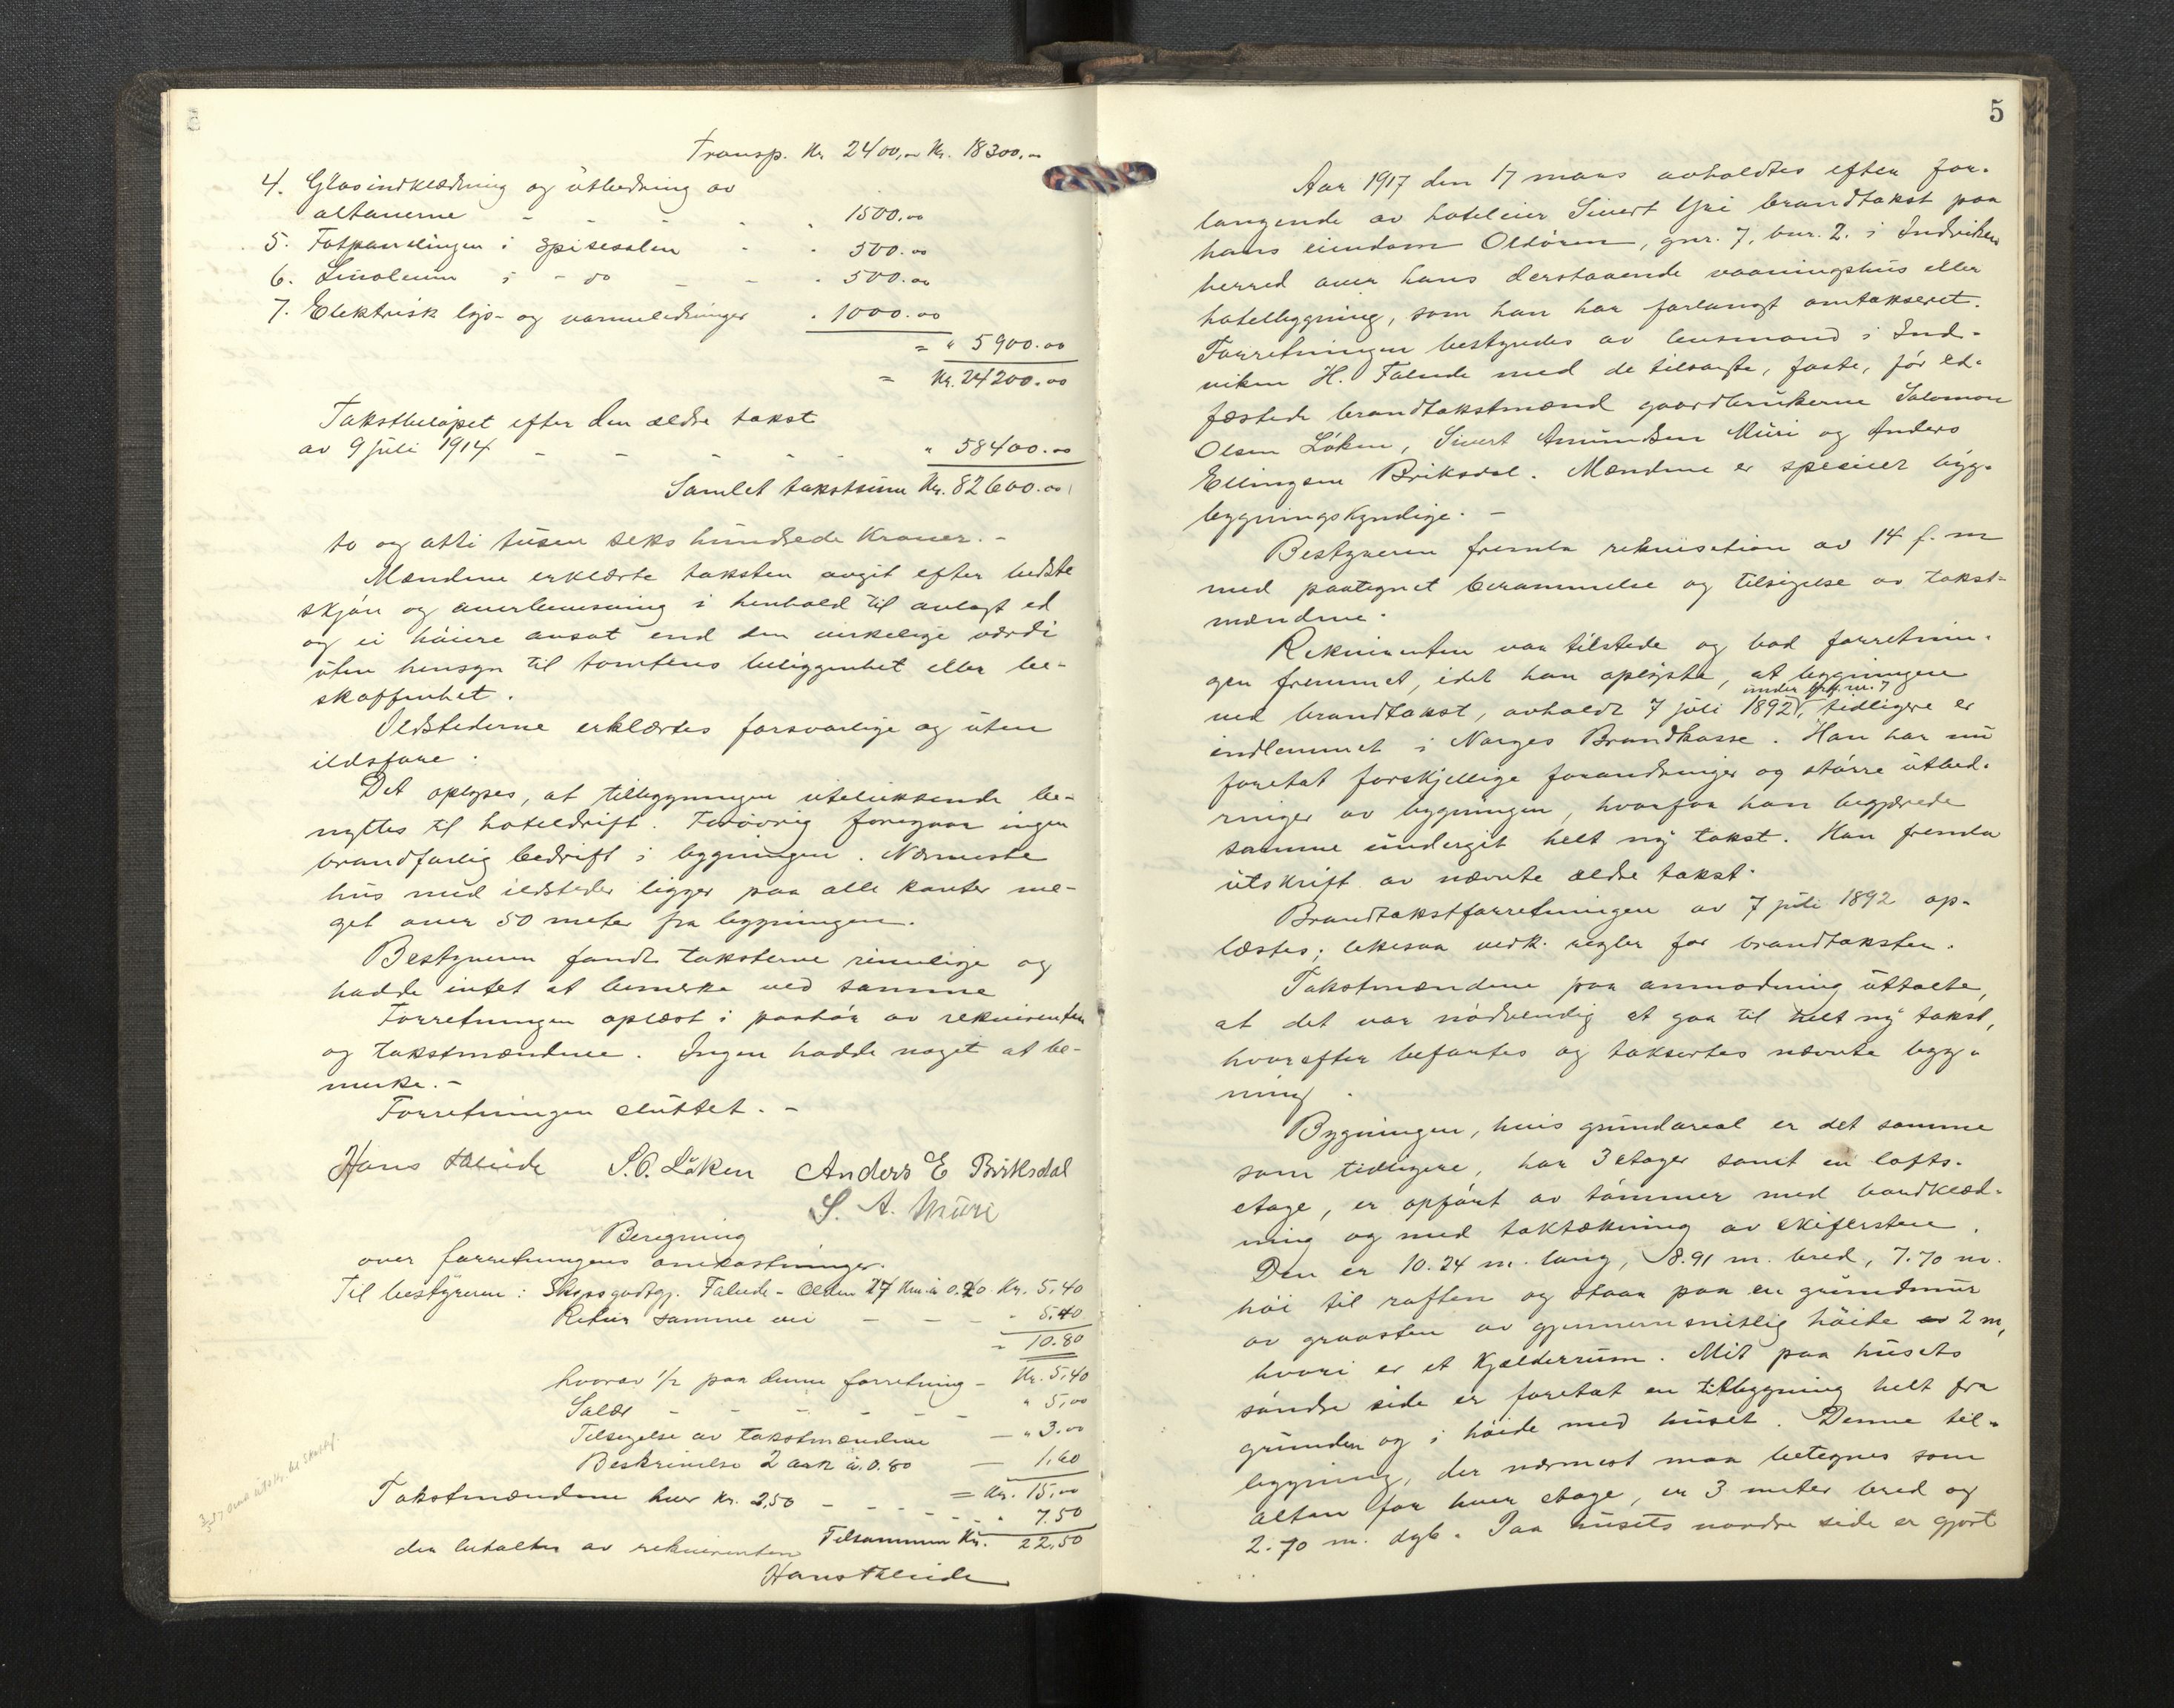 Transp. Kr. 2400,00 Kr. 18300,00
4. Glasindklædning og utbedring av
altanerne - - - - 1500.00
5. Fotpanelingen i spisesalen - - 500.00
6. Linoleum i - do - - - 500.00
7. Elektrisk lys- og varmeledninger - 1000.00
= " 5900.00
= Kr. 24200.00
Takstbeløpet efter den ældre takst
av 9 juli 1914 - - - - - " 58400.00
Samlet takstsum Kr. 82600.00
to og otti tusen seks hundrede kroner. -
Mændene erklærte taksten avgit efter bedste
skjøn og overbevisning i henhold til avlagt ed
og ei høiere ansat end den virkelige værdi
uten hensyn til tomtens beliggenhet eller be-
skaffenhet.
Ildstederne erklærtes forsvarlige og uten
ildsfare.
Det oplyses, at tilbygningen utelukkende be-
nyttes til hoteldrift. Forøvrig foregaar ingen
brandfarlig bedrift i bygningen. Nærmeste
hus med ildsteder ligger paa alle kanter me-
get over 50 meter fra bygningen.
Bestyreren fandt taksterne rimelige og
hadde intet at bemerke ved samme
Forretningen oplæst i paahør av rekvirenten
og takstmændene. Ingen hadde noget at be-
merke. -
Forretningen sluttet. -
Hans Aalade S. O. Løken Anders E Briksdal
S. A. Muri
Beregning
over forretningens omkostninger.
Til bestyreren: Skyssgodtgj. Faleide - Olden 27 km. à 0.20 Kr. 5,40
Retur samme vei - - - - " 5.40
" 10.80
hvorav 1/2 paa denne forretning - Kr. 5,40
Salær - - - - - - " 5,00
Tilsigelse av takstmændene - " 3.00
Beskrivelse 2 ark à. 0.80 - 1,60
= Kr. 15,00
Takstmændene hver Kr. 2,50 - - - - - 7.50
Tilsammen Kr. 22,50
der betaltes av rekvirenten
5
Aar 1917 den 17 mars avholdtes efter for-
langende av hoteleier Sivert Yri brandtakst paa
hans eiendom Oldøren, gnr. 7, bnr. 2. i Indviken
herred over hans derstaaende vaaningshus eller
hotelbygning, som han har forlangt omtakseret.
Forretningen bestyredes av lensmand i Ind-
viken H. Faleide med de tilsagte, faste, før ed-
fæstede brandtakstmænd gaardbrukerne Salomon
Olsen Løken, Sivert Amundsen Muri og Anders
Ellingsen Briksdal. Mændene er specielt byg-
bygningskyndige. -
Bestyreren fremla rekvisition av 14 f. m
med paategnet berammelse og tilsigelse av takst-
mændene.
Rekvirenten var tilstede og bad forretnin-
gen fremmet, idet han oplyste, at bygningen
under brk. nr. 7
ved brandtakst, avholdt 7 juli 1892, tidligere er
indlemmet i Norges Brandkasse. Han har nu
foretat forskjellige forandringer og større utbed-
ringer av bygningen, hvorfor han begjærede
samme undergit helt ny takst. Han fremla
utskrift av nævnte ældre takst.
Brandtakstforretningen av 7 juli 1892 op-
læstes; likesaa vedk. regler for brandtaksten.
Takstmændene paa anmodning uttalte,
at det var nødvendig at gaa til helt ny takst,
hvorefter befartes og taksertes nævnte byg-
ning.
Bygningen, hvis grundareal er det samme
som tidligere, har 3 etager samt en lofts-
etage, er opført av tømmer med bordklæd-
ning og med taktækning av skifersten.
Den er 10.24 m. lang, 8.91 m. bred, 7.70 m.
høi til raften og staar paa en grundmur
av graasten av gjennemsnitlig høide av 2 m,
hvori er et kjælderrum. Mit paa husets
søndre side er foretat en tilbygning helt fra
grunden og i høide med huset. Denne til-
bygning, der nærmest maa betegnes som
altan for hver etage, er 3 meter bred og
2.70 m. dyb. Paa husets nordre side er gjort